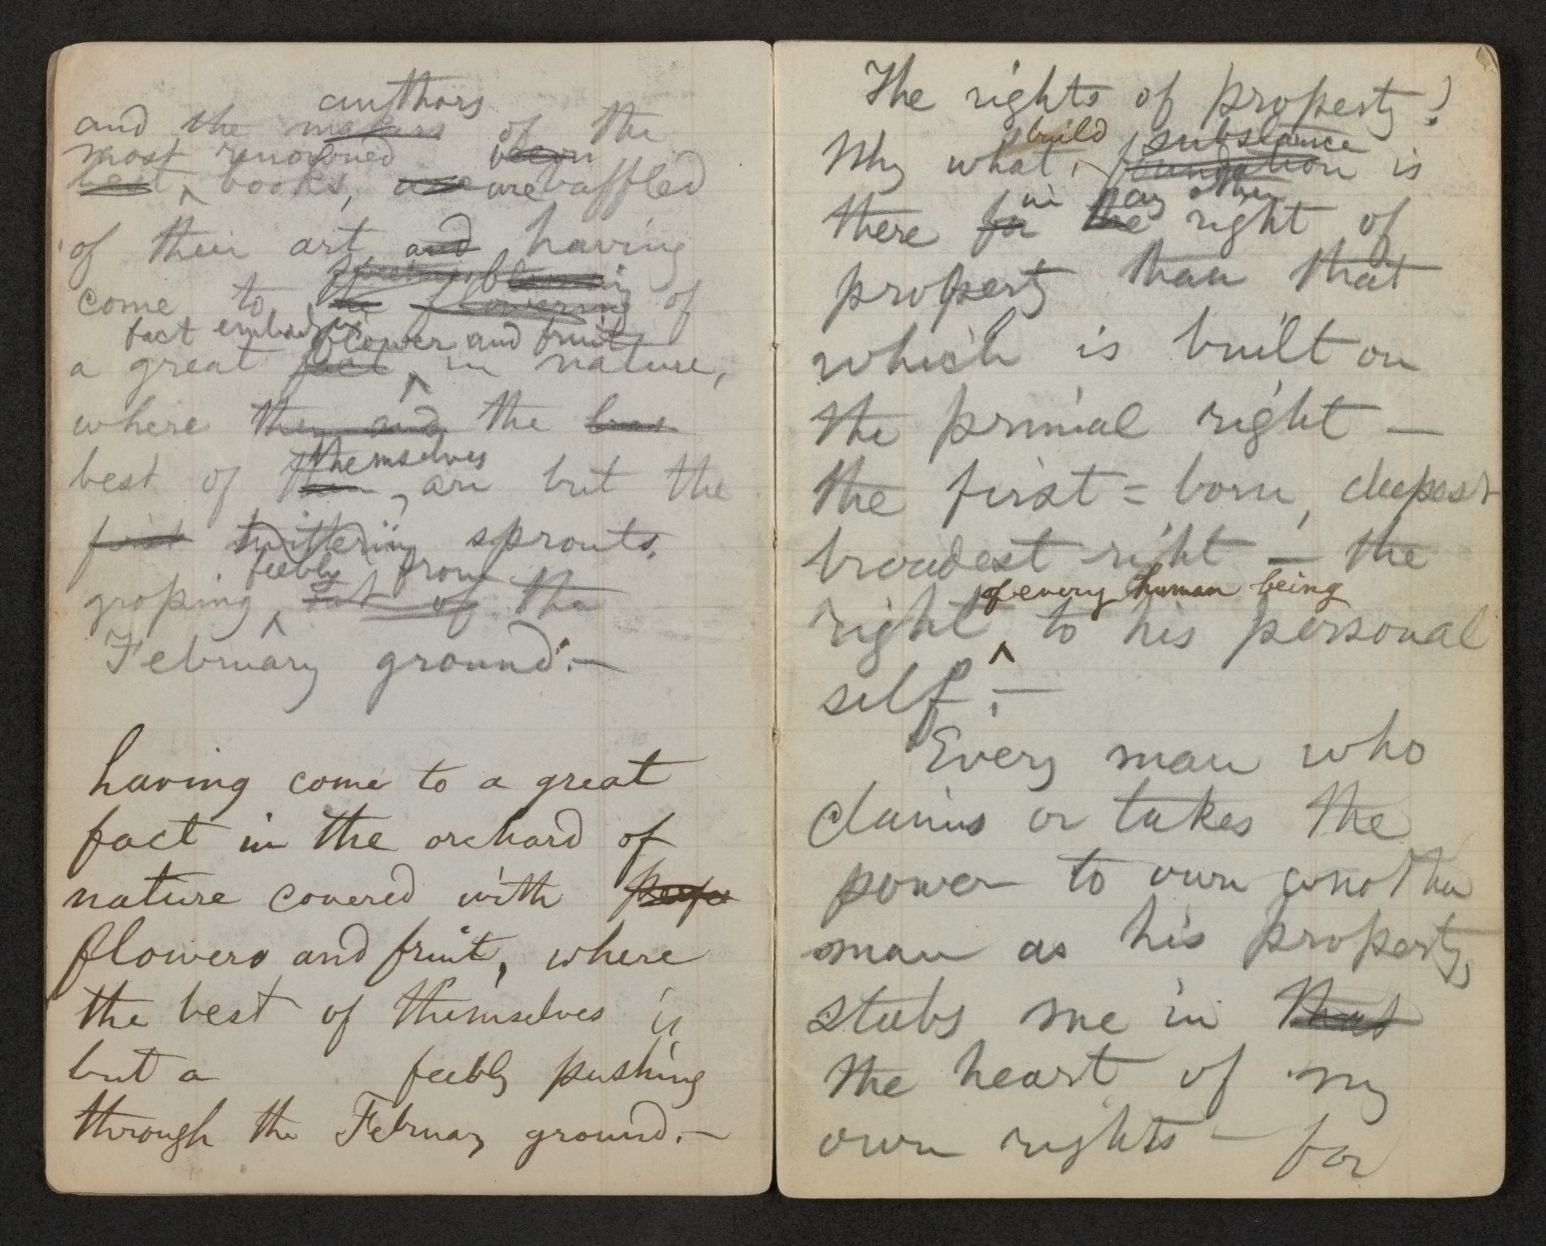 authors
and the makers of the
most renowned been
best books, are are baffled
of their art and having
come to the flowering of
fact embody flower and fruit
a great fact in nature,
where they and the
best of them themselves are but the
first twittering sprouts,
feebly from
groping out of the
February ground.—
having come to a great
fact in the orchard of
nature covered with perfe
flowers and fruit, where
the best of themselves is
but a feebly pushing
through the February ground.—
The rights of property!
build substance
Why what foundation is
in any other
there for the right of
property than that
which is built on
the primal right —
the first=born, deepest
broadest right — the
of every human being
right to his personal
self.—
Every man who
claims or takes the
power to own another
man as his property,
stabs me in that
the heart of my
own rights — for